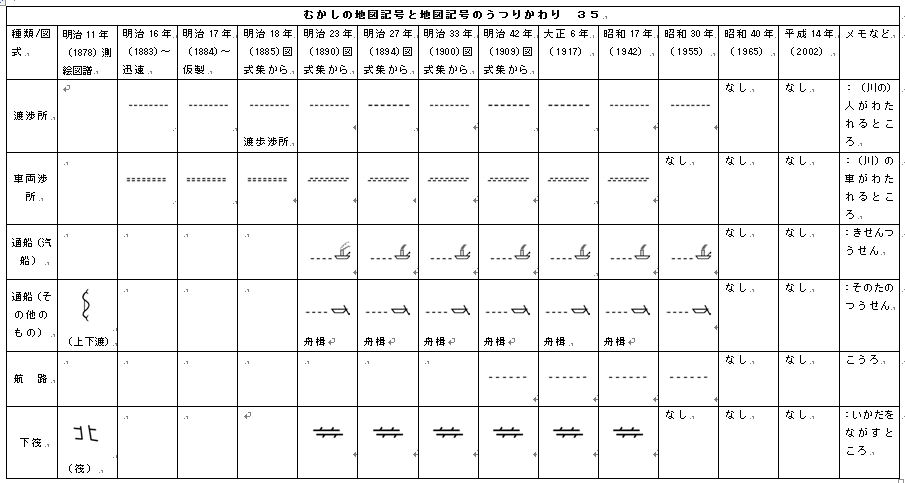 むかしの地図記号と地図記号のうつりかわり　３５
種類/図式 明治11年(1878)測絵図譜 明治16年(1883)～迅速 明治17年(1884)～仮製 明治18年(1885)図式集から 明治23年(1890)図式集から 明治27年(1894)図式集から 明治33年(1900)図式集から 明治42年(1909)図式集から 大正6年(1917) 昭和17年(1942) 昭和30年(1955) 昭和40年(1965) 平成14年(2002) メモなど
渡渉所 渡歩渉所 なし なし ：（川の）人がわたれるところ
車両渉所 なし なし なし ：（川）の車がわたれるところ
通船（汽船） なし なし ：きせんつうせん
通船（その他のもの） （上下渡） 舟楫 舟楫 舟楫 舟楫 舟楫 舟楫 なし なし ：そのたのつうせん
航　路 なし なし こうろ
下筏 （筏） なし なし なし ：いかだをながすところ